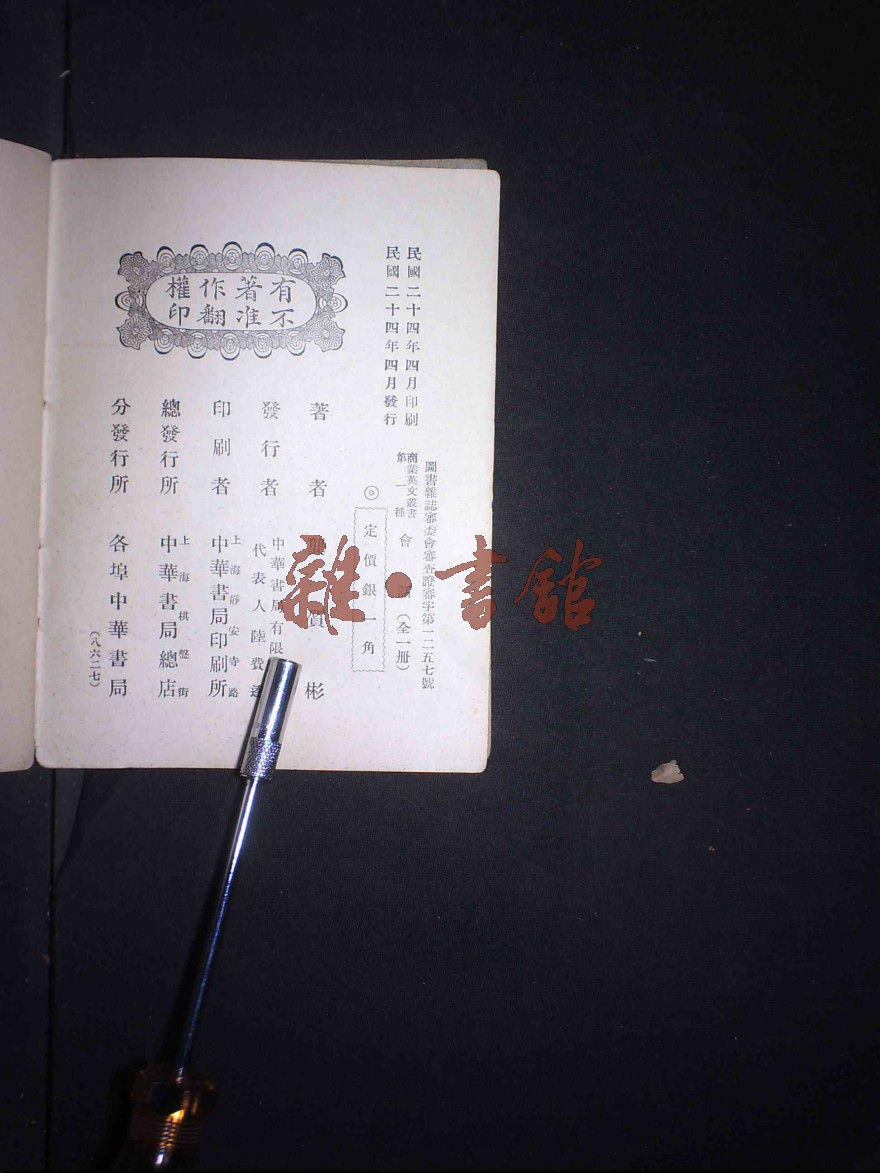 民國二十四年四月印刷
民國二十四年四月發行
圖書雜誌審委會審查證審字第一二五七號
商業英文叢書
第一種
會
(全一册)
◎
定價銀一角
有著作權
不准翻印
著者
彬
發行者
中華書局有限
代表人陸費逵
印刷者
上海靜安寺路
中華書局印刷所
總發行所
上海棋盤街
中華書局總店
分發行所
各埠中華書局
(八六二七)
雜·書館